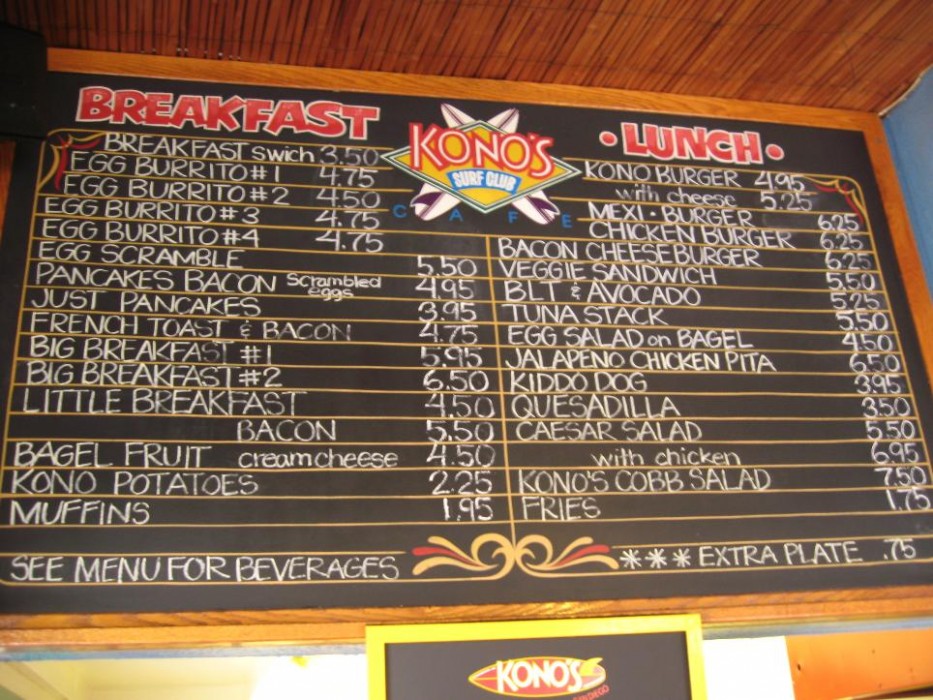 BREAKFAST
BREAKFAST swich 3.50
EGG BURRITO #1 4.75
EGG BURRITO #2 4.50
EGG BURRITO #3 4.75
EGG BURRITO #4 4.75
EGG SCRAMBLE 5.50
PANCAKES BACON Scrambled eggs 4.95
JUST PANCAKES 3.95
FRENCH TOAST & BACON 4.75
BIG BREAKFAST #1 5.95
BIG BREAKFAST #2 6.50
LITTLE BREAKFAST 4.50
BACON 5.50
BAGEL FRUIT cream cheese 4.50
KONO POTATOES 2.25
MUFFINS 1.95
SEE MENU FOR BEVERAGES
KONO'S
SURF CLUB
CAFE
• LUNCH •
KONO BURGER 4.95
with cheese 5.25
MEXI • BURGER 6.25
CHICKEN BURGER 6.25
BACON CHEESEBURGER 6.25
VEGGIE SANDWICH 5.50
BLT & AVOCADO 5.25
TUNA STACK 5.50
EGG SALAD on BAGEL 4.50
JALAPENO CHICKEN PITA 6.50
KIDDO DOG 3.95
QUESADILLA 3.50
CAESAR SALAD 5.50
with chicken 6.95
KONO'S COBB SALAD 7.50
FRIES 1.75
*** EXTRA PLATE .75
KONO'S
SAN DIEGO